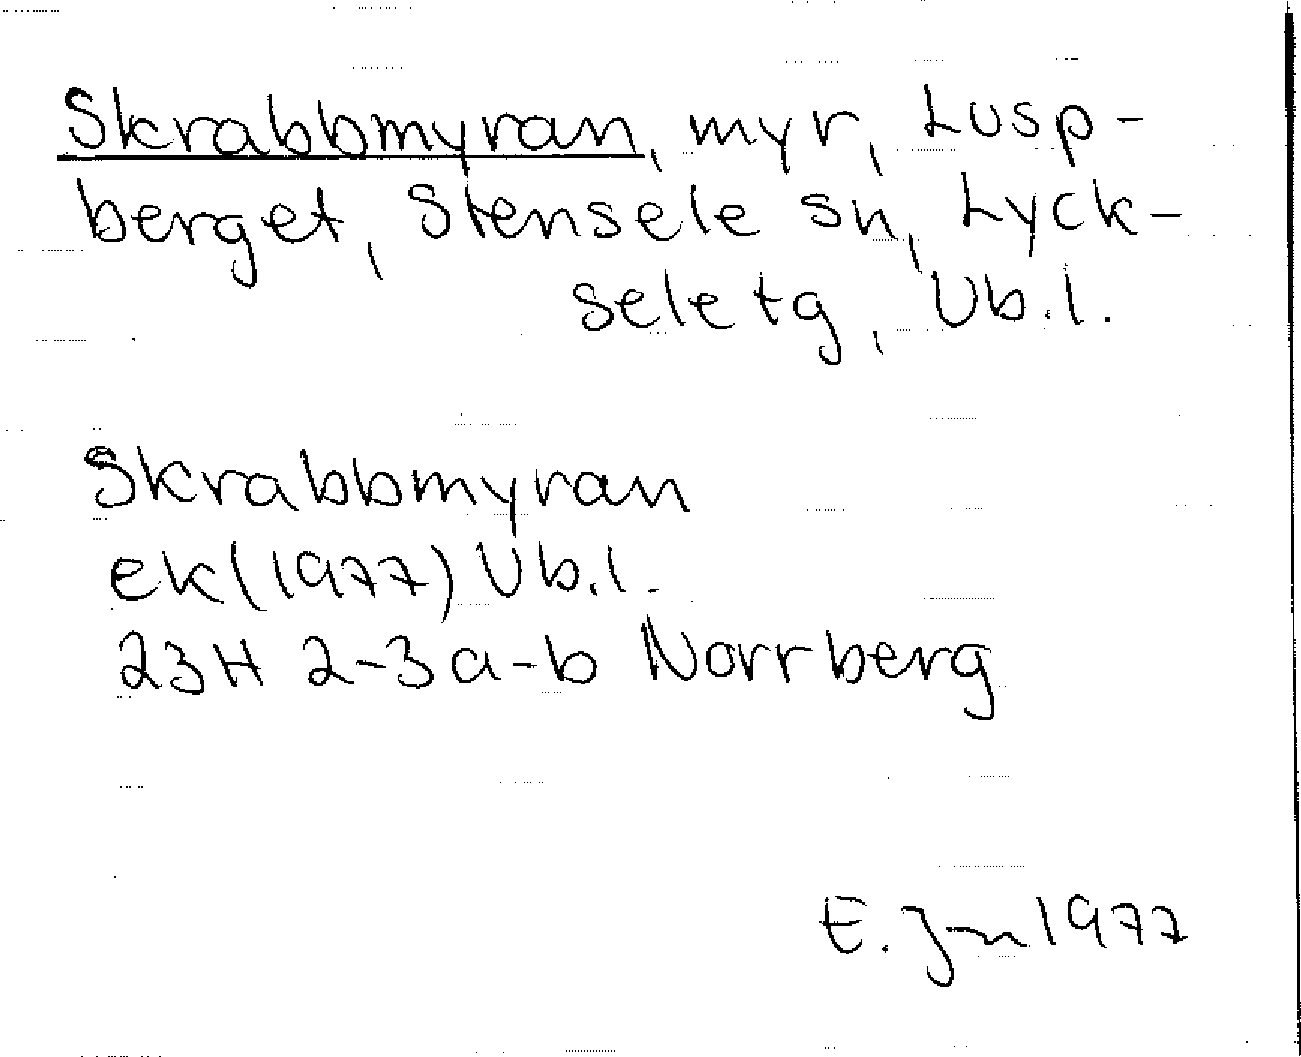 Skrabbmyran, myr, Lusp-
berget, Stensele sn, Lyck-
sele tg, Vb.l.
Skrabbmyran
ek(1977) Vb.l.
23H 2-3a-b Norrberg
E. Jn 1977